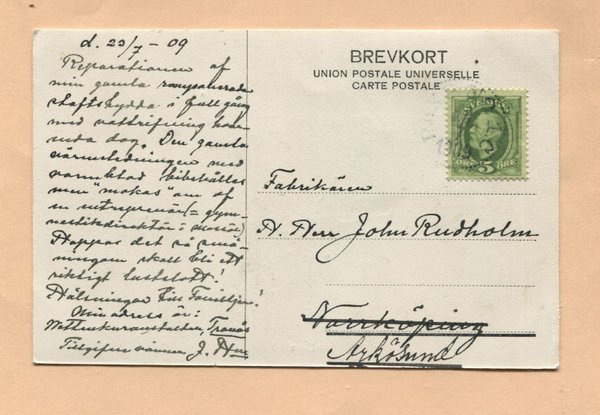 d. 23/7 - 09
Reparationen af
min gamla
skaftskydda i full gång
med
dag. Den gamla
värmeledningen med
varmbad bibehålles
men "mokas" om af
en entreprenör (= gym-
nastikdirektör i
Hoppas det så små-
ningom skall bli ett
riktigt lustslott!
Hälsningar till Familjen!
Min adress är:
Vattenkuranstalten, Tranås
Tillgifne vännen, J.
BREVKORT
UNION POSTALE UNIVERSELLE
CARTE POSTALE
SVERIGE
5 ÖRE
Fabrikören
H. Herr John Rudholm
Norrköping
Arkösund